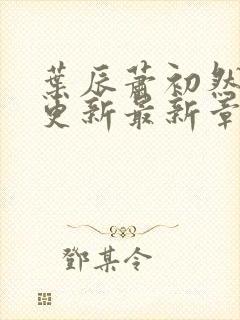 葉辰蕭初然
更新最新章
鄧某令